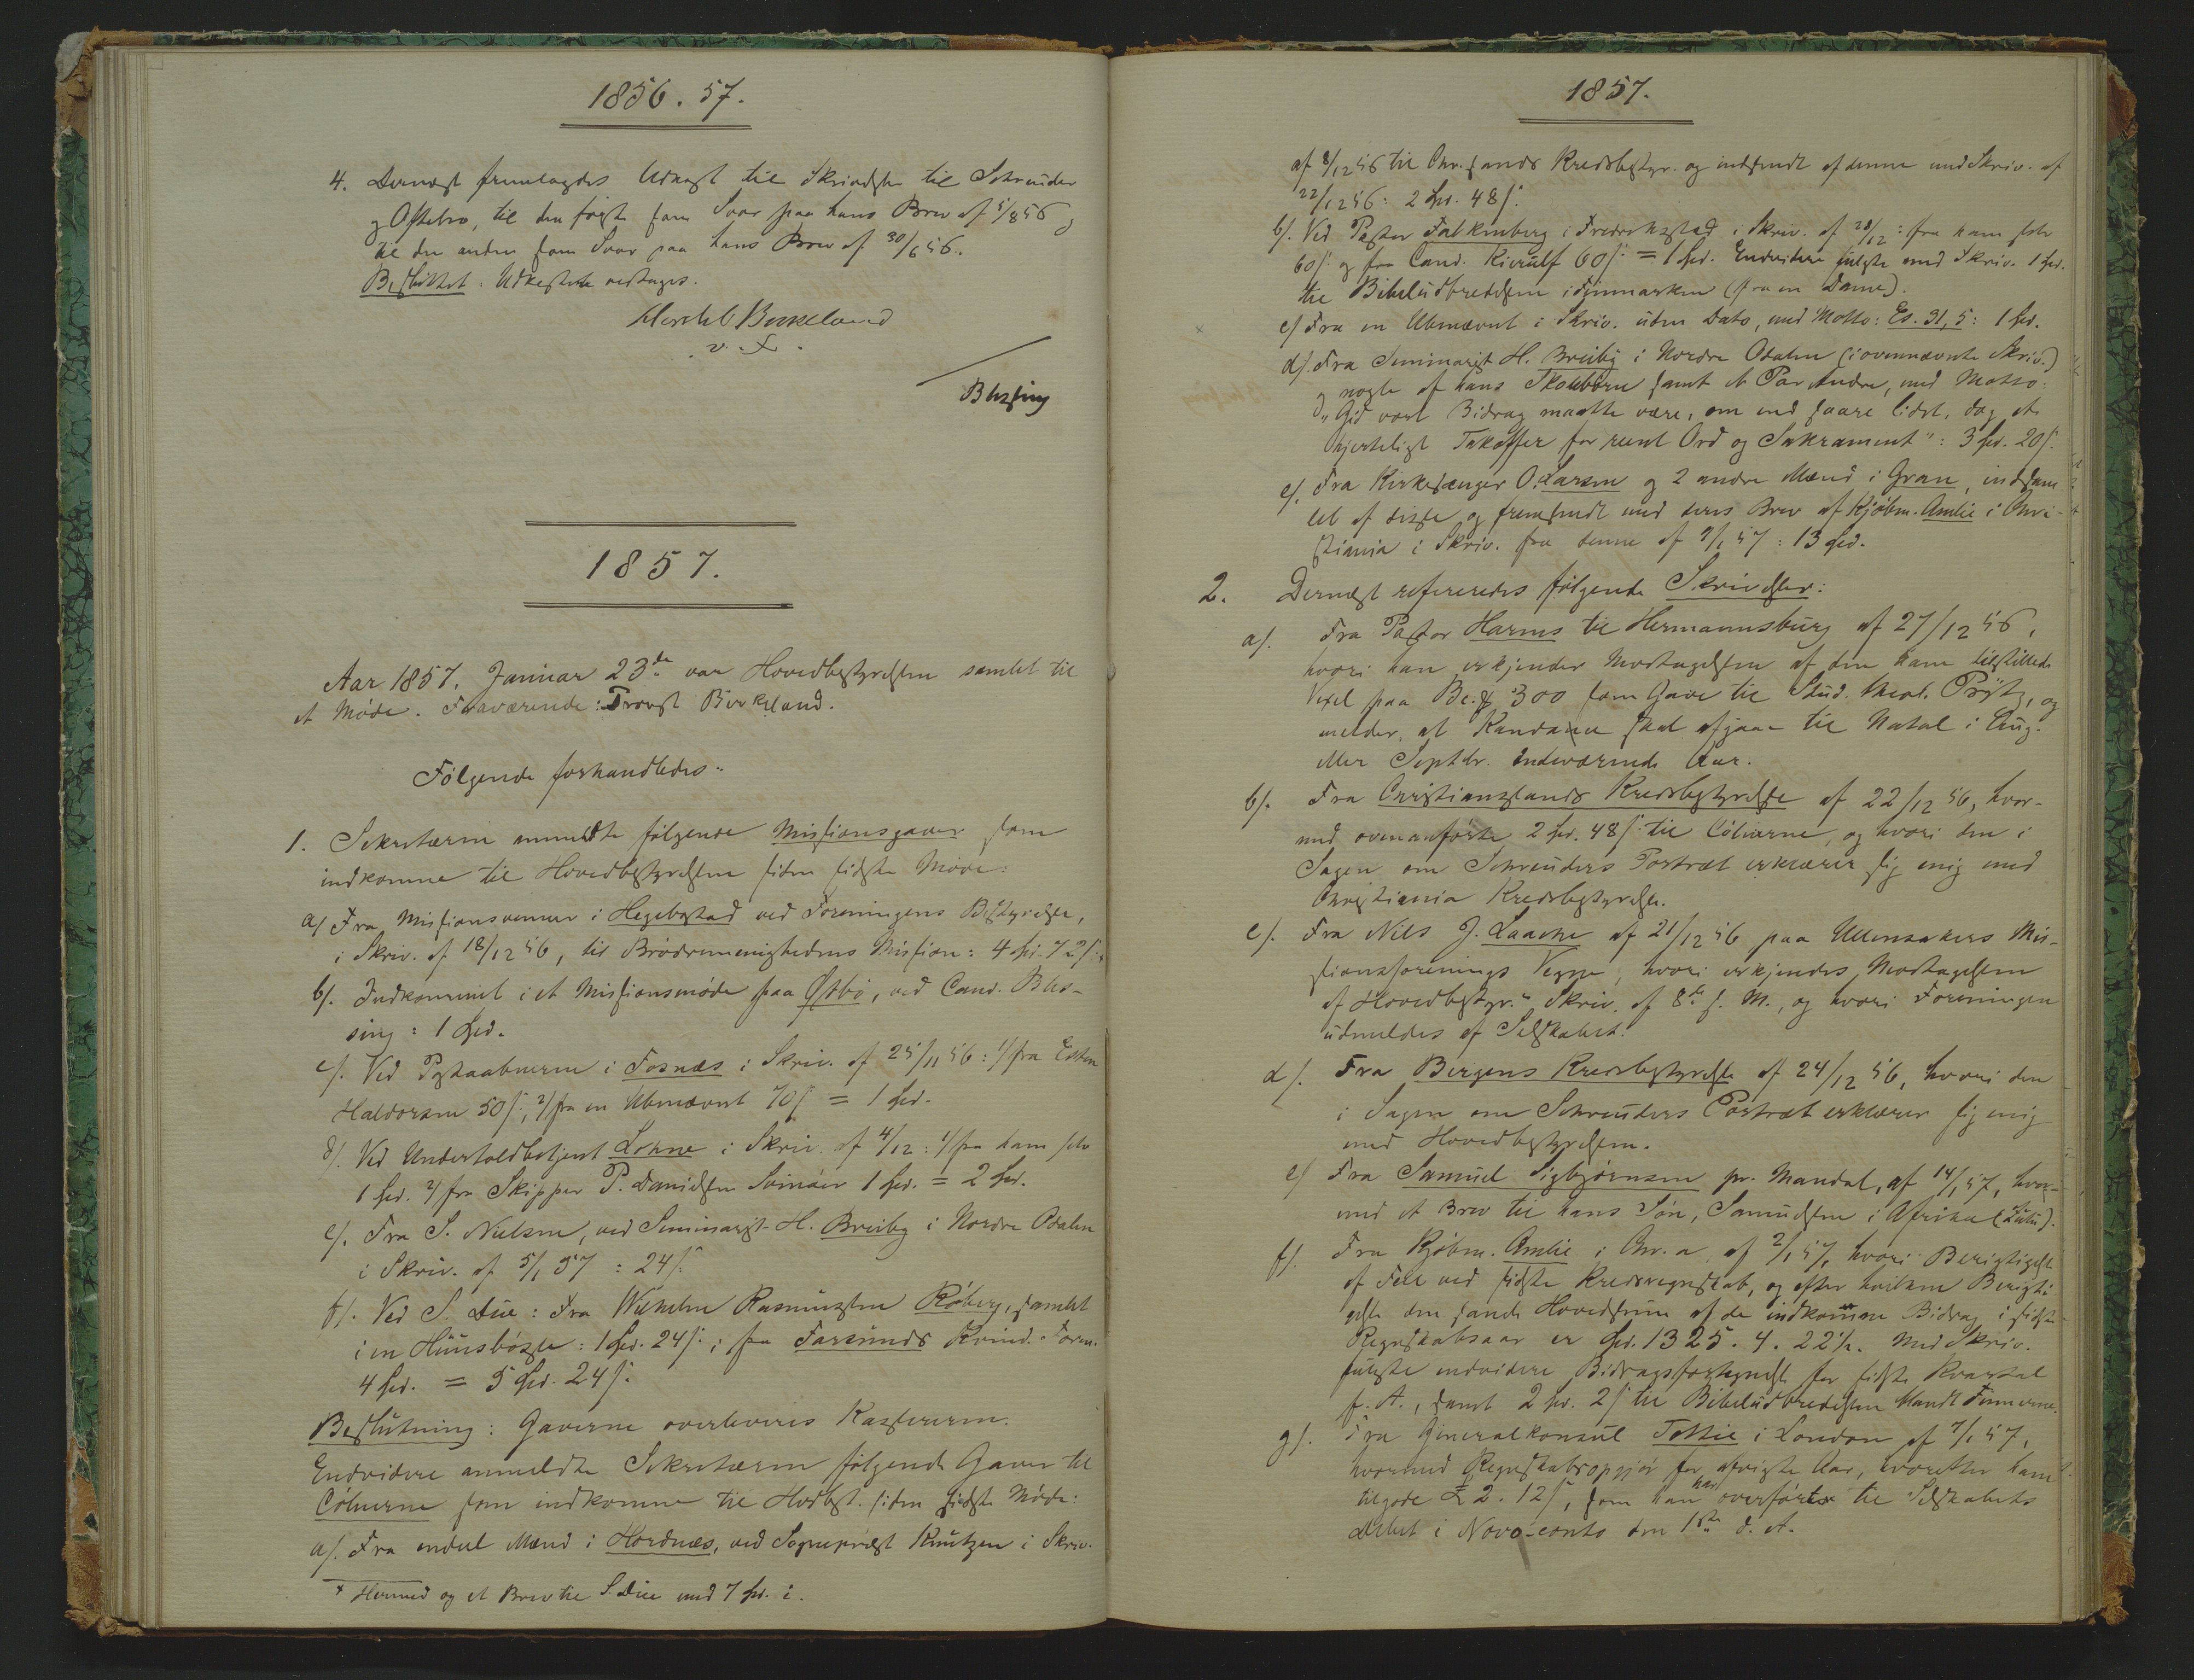 1856. 57.
4. Dernæst fremlagdes Udkast til Skrivelse til Schreuder
og Oftebro, til den første som Svar paa hans Brev af 5/8 56 og
til den anden som Svar paa hans Brev af 30/6 56.
Besluttet: Udkastene vedtages.
Birkeland
v. F.
Blessing
1857.
Aar 1857. Januar 23de var Hovedbestyrelsen samlet til
et Møde. Fraværende: Provst Birkeland.
Følgende forhandledes:
1. Sekretæren anmeldte følgende Missionsgaver som
indkomne til Hovedbestyrelsen siden sidste Møde:
a/. Fra Missionsvenner i Hegebostad ved Foreningens Bestyrelse,
i Skriv. af 18/12 56, til Brødremenighedens Mission: 4 Spd. 72 s. x
b/. Indkommet i et Missionsmøde paa Østbø, ved Cand. Bles-
sing: 1 Spd.
c/. Ved Postaabneren i Fosnæs i Skriv. af 25/11 56: 1/ fra Esten
Haldorsen 50 s., 2/ fra en Unævnt 70 s. = 1 Spd.
d/. Ved Undertoldbetjent Lohne i Skriv. af 4/12: 1/ fra ham selv
1 Spd. 2/ fra Skipper P. Danielsen Svinøer 1 Spd. = 2 Spd.
e/. Fra S. Nielsen, ved Seminarist H. Breiby i Nordre Odalen
i Skriv. af 5/1 57: 24 s.
f/. Ved S. Due: Fra Wilhelm Rasmussen Røberg, samlet
i en Huusbøsse: 1 Spd. 24 s.; fra Farsunds Kvind.-Foren.
4 Spd. = 5 Spd. 24 s.
Beslutning: Gaverne overleveres Kassereren.
Endvidere anmeldte Sekretæren følgende Gaver til
Cölnerne som indkomne til Hovdbst. siden sidste Møde:
a/. Fra endel Mænd i Hordnæs, ved Sognepræst Knutzen i Skriv.
x Hermed og et Brev til S. Due med 7 Spd. i.
1857.
af 8/12 56 til Chr.sands Kredsbestyr. og indsendt af denne med Skriv. af
22/12 56: 2 Spd. 48 s.
b/. Ved Pastor Falkenberg i Frederikstad i Skriv. af 28/12: fra ham selv
60 s. og fra Cand. Kierulf 60 s. = 1 Spd. Endvidere fulgte med Skriv. 1 Spd.
til Bibeludbredelsen i Finmarken (fra en Dame).
c/. Fra en Unævnt i Skriv. uden Dato, med Motto: Es. 31, 5: 1 Spd.
d/. Fra Seminarist H. Breiby i Nordre Odalen (i ovennævnte Skriv.)
og nogle af hans Skolebørn samt et Par Andre, med Motto:
"Gid vort Bidrag maatte være, om end saare lidet, dog et
hjerteligt Takoffer for reent Ord og Sakrament": 3 Spd. 20 s.
e/. Fra Kirkesanger O. Larsen og 2 andre Mænd i Gran, indsam
let af disse og fremsendt med deres Brev af Kjøbm. Amlie i Chri-
stiania i Skriv. fra denne af 9/1 57: 13 Spd.
2. Dernæst refereredes følgende Skrivelser:
a/. Fra Pastor Harms til Hermannsburg af 27/12 56,
hvori han erkjender Modtagelsen af den ham tilstillede
Vexel paa Bc. 300 som Gave til Stud. theol. Prytz, og
melder, at Kandace skal afgaae til Natal i Aug.
eller Septbr. indeværende Aar.
b/. Fra Christianssands Kredsbestyrelse af 22/12 56, hvor-
med ovenanførte 2 Spd. 48 s. til Cölnerne, og hvori den i
Sagen om Schreuders Portræt erklærer sig enig med
Christiania Kredsbestyrelse.
c/. Fra Nils J. Laache af 21/12 56 paa Ullensakers Mis-
sionsforenings Vegne, hvori erkjendes Modtagelsen
af Hovedbestyr.s Skriv. af 8de s. M., og hvori Foreningen
udmeldes af Selskabet.
d/. Fra Bergens Kredsbestyrelse af 24/12 56, hvori den
i Sagen om Schreuders Portræt erklærer sig enig
med Hovedbestyrelsen.
e/. Fra Samuel Sigbjørnsen pr. Mandal, af 14/1 57, hvor-
med et Brev til hans Søn, Samuelsen i Afrika (Zulu).
f/. Fra Kjøbm. Amlie i Chr.a af 2/1 57, hvori Berigtigelse
af Feil ved sidste Kredsregnskab, og efter hvilken Berigti-
gelse den sande Hovedsum af de indkomne Bidrag i sidste
Regnskabsaar er Spd. 1325. 4. 22½. Med Skriv.
fulgte endvidere Bidragsfortegnelse for sidste Kvartal
f. A., samt 2 Spd. 2 s. til Bibeludbredelsen blandt Finnerne.
g/. Fra Generalkonsul Tottie i London af 7/1 57,
hvormed Regnskabsopgjør for afvigte Aar, hvorefter ham
tilgode £ 2. 12 s., som han har overført til Selskabets
Debet i Novo-conto den 1ste d. A.